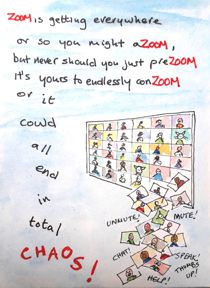 ZOOM is getting everywhere
or so you might aZOOM,
but never should you just preZOOM
It's yours to endlessly conZOOM
or it
could
all
end
in
total
CHAOS!
UNMUTE!
MUTE!
CHAT!
SPEAK!
THUMBS
UP!
HELP!